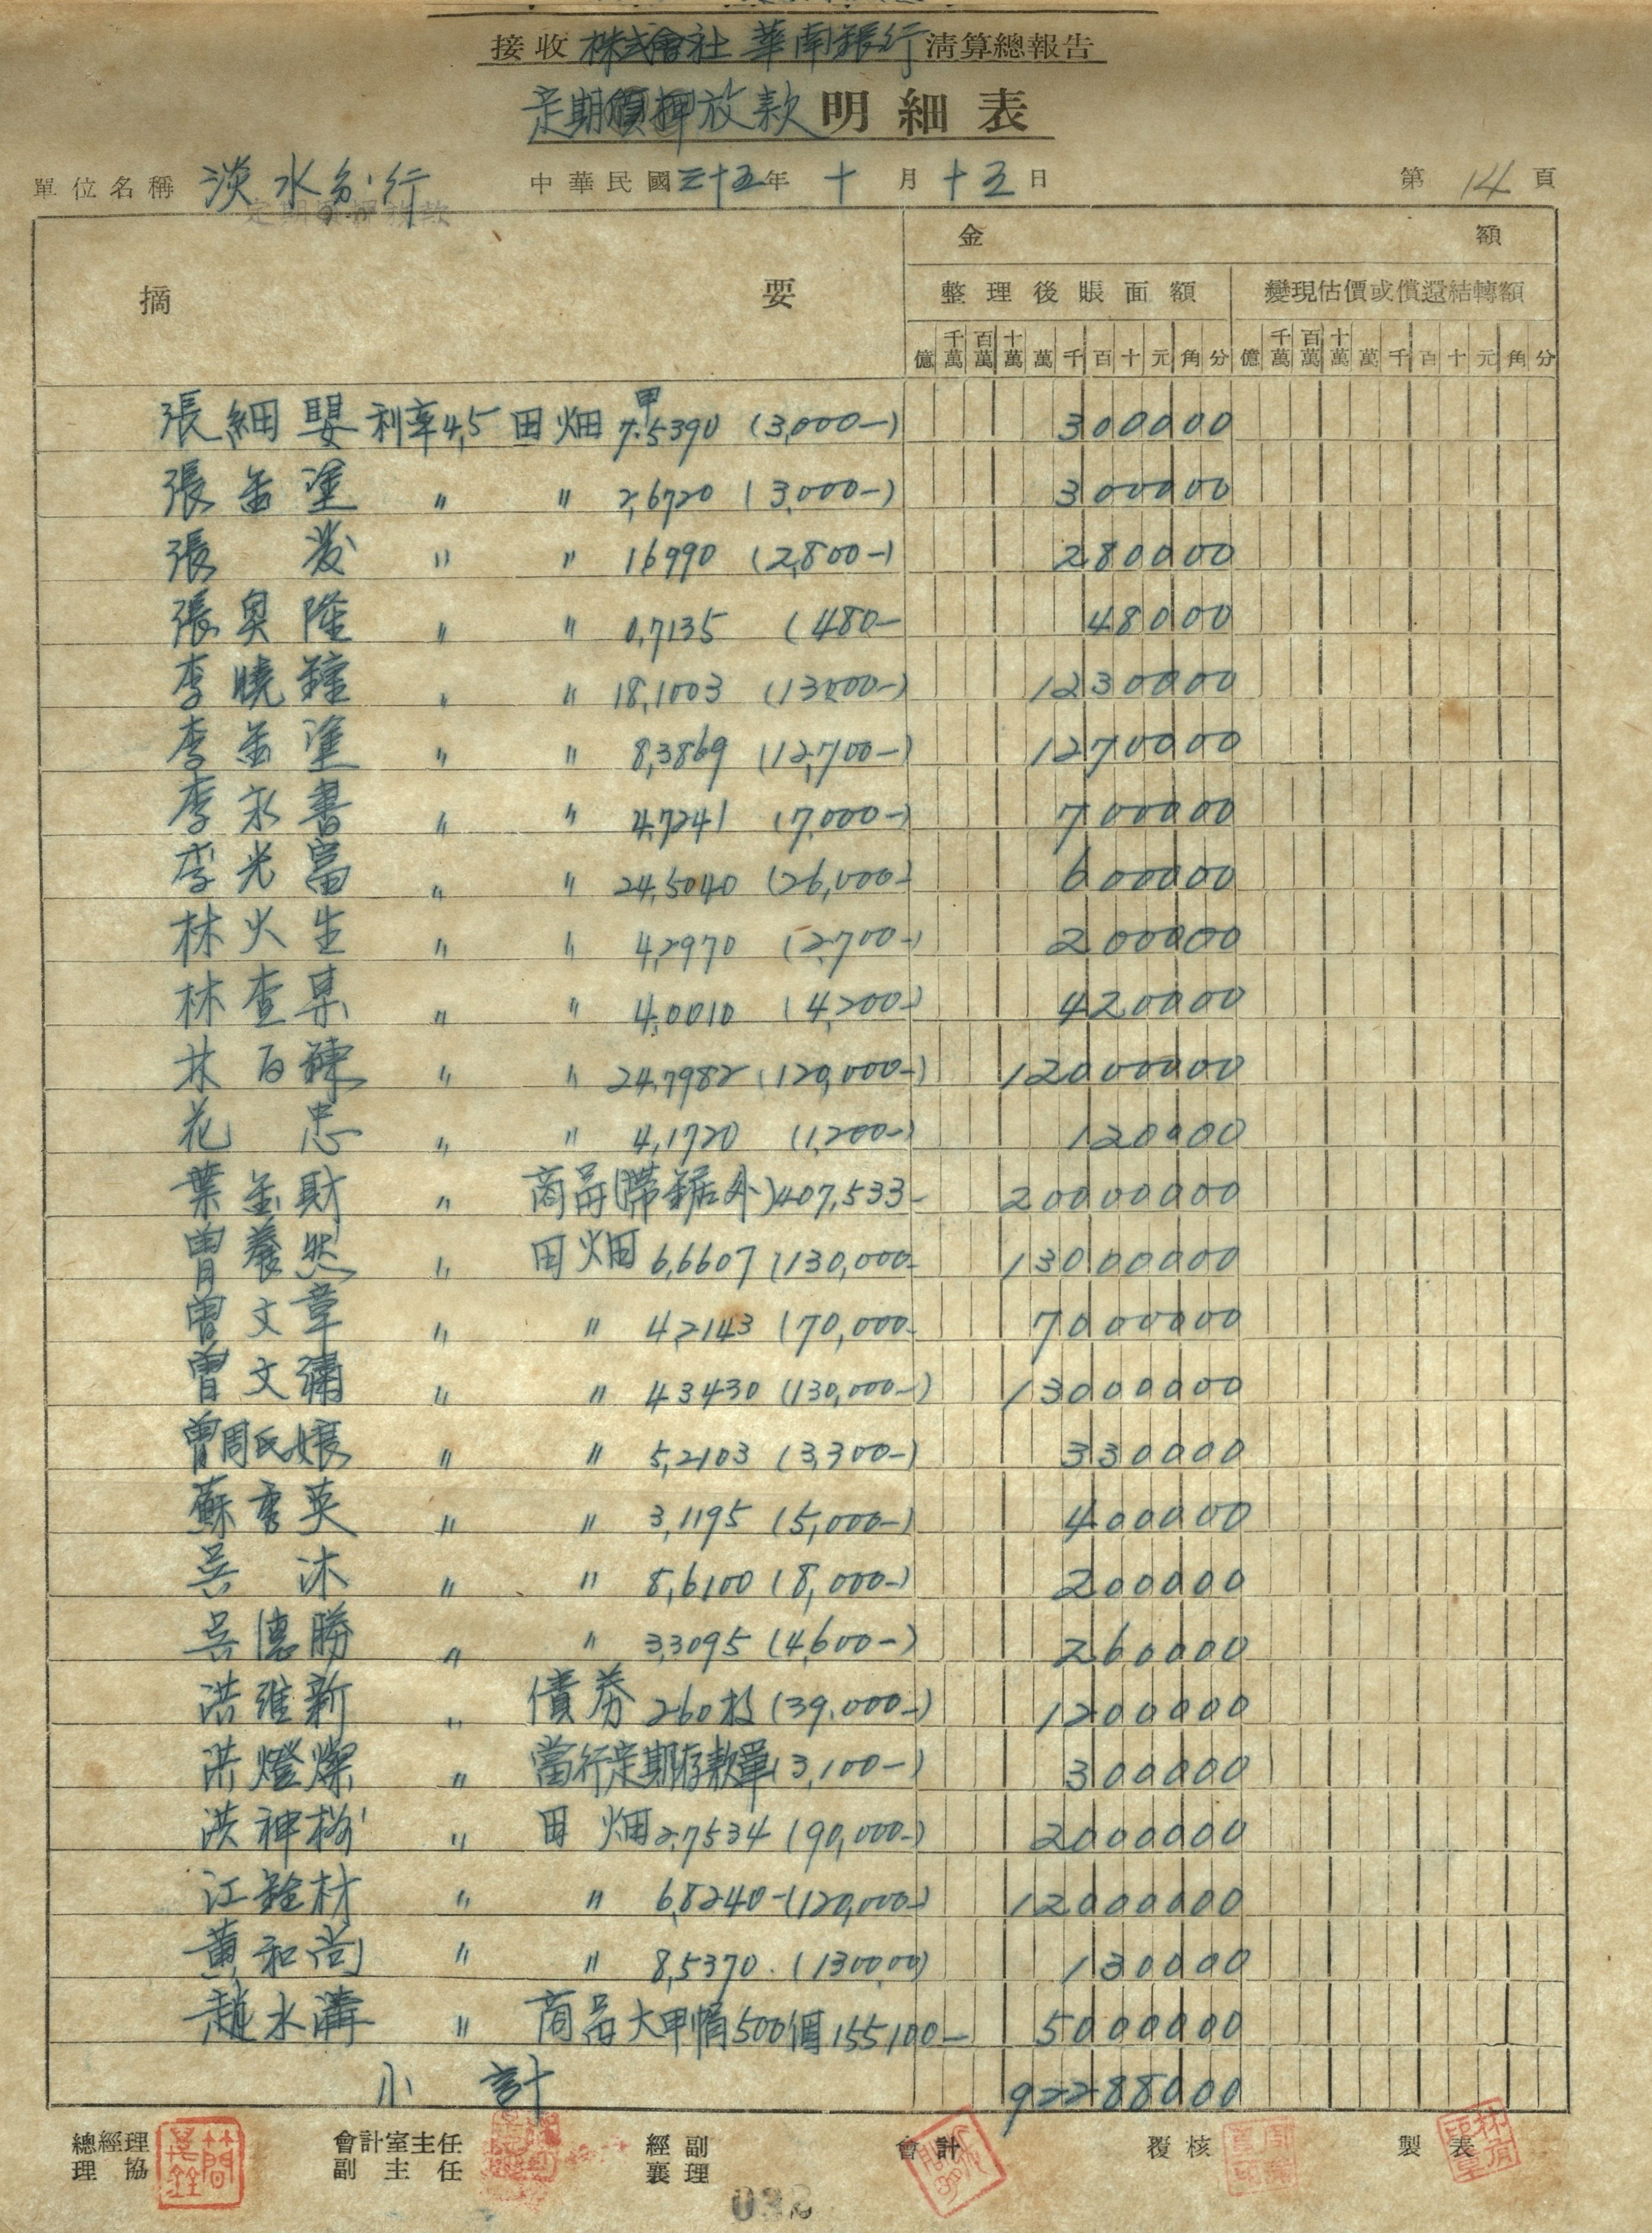 接收株式會社華南銀行清算總報告
定期質押放款明細表
單位名稱 淡水分行 中華民國三十五年十月十五日 第14頁
定期質押放款
金額
摘要 整理後賬面額 變現估價或償還結轉額
億 千萬 百萬 十萬 萬 千 百 十 元 角 分 億 千萬 百萬 十萬 萬 千 百 十 元 角 分
張細嬰 利率4,5 田畑 甲 7.5390 (3,000-) 300000
張金塗 〃 〃 2,6720 (3,000-) 300000
張發 〃 〃 16990 (2,800-) 280000
張奧隆 〃 〃 0,7135 (480- 48000
李曉鐘 〃 〃 18,1003 (13000-) 1230000
李金塗 〃 〃 8,3869 (12,700-) 1270000
李永書 〃 〃 4,7241 (7,000-) 700000
李光富 〃 〃 24,5040 (26,000-) 600000
林火生 〃 〃 4,2970 (2,700-) 200000
林查某 〃 〃 4,0010 (4,200-) 420000
林百鍊 〃 〃 24,7982 (120,000-) 12000000
花忠 〃 〃 4,1720 (1,200-) 120000
葉金財 〃 商品(帶鋸外) 407,533- 20000000
曾養然 〃 田畑 6,6607 (130,000- 13000000
曾文章 〃 〃 4,2143 (70,000- 7000000
曾文 〃 〃 43430 (130,000-) 13000000
曾周氏娘 〃 〃 5,2103 (3,300-) 330000
蘇秀英 〃 〃 3,1195 (5,000-) 400000
吳沐 〃 〃 8,6100 (8,000-) 200000
吳德勝 〃 〃 3,3095 (4,600-) 260000
洪維新 〃 債券 260枚 (39,000-) 1200000
洪燈燦 〃 當行定期存款單(3,100-) 300000
洪神松 〃 田畑 2,7534 (90,000-) 2000000
江銓材 〃 〃 6,8240-(120,000-) 12000000
黃和尚 〃 〃 8,5370. (130000) 130000
趙水溝 〃 商品大甲帽500個 155,100- 5000000
小計 92288000
總經理 會計室主任 經副 會計 覆核 製表
理協 副主任 襄理
簡
林
032